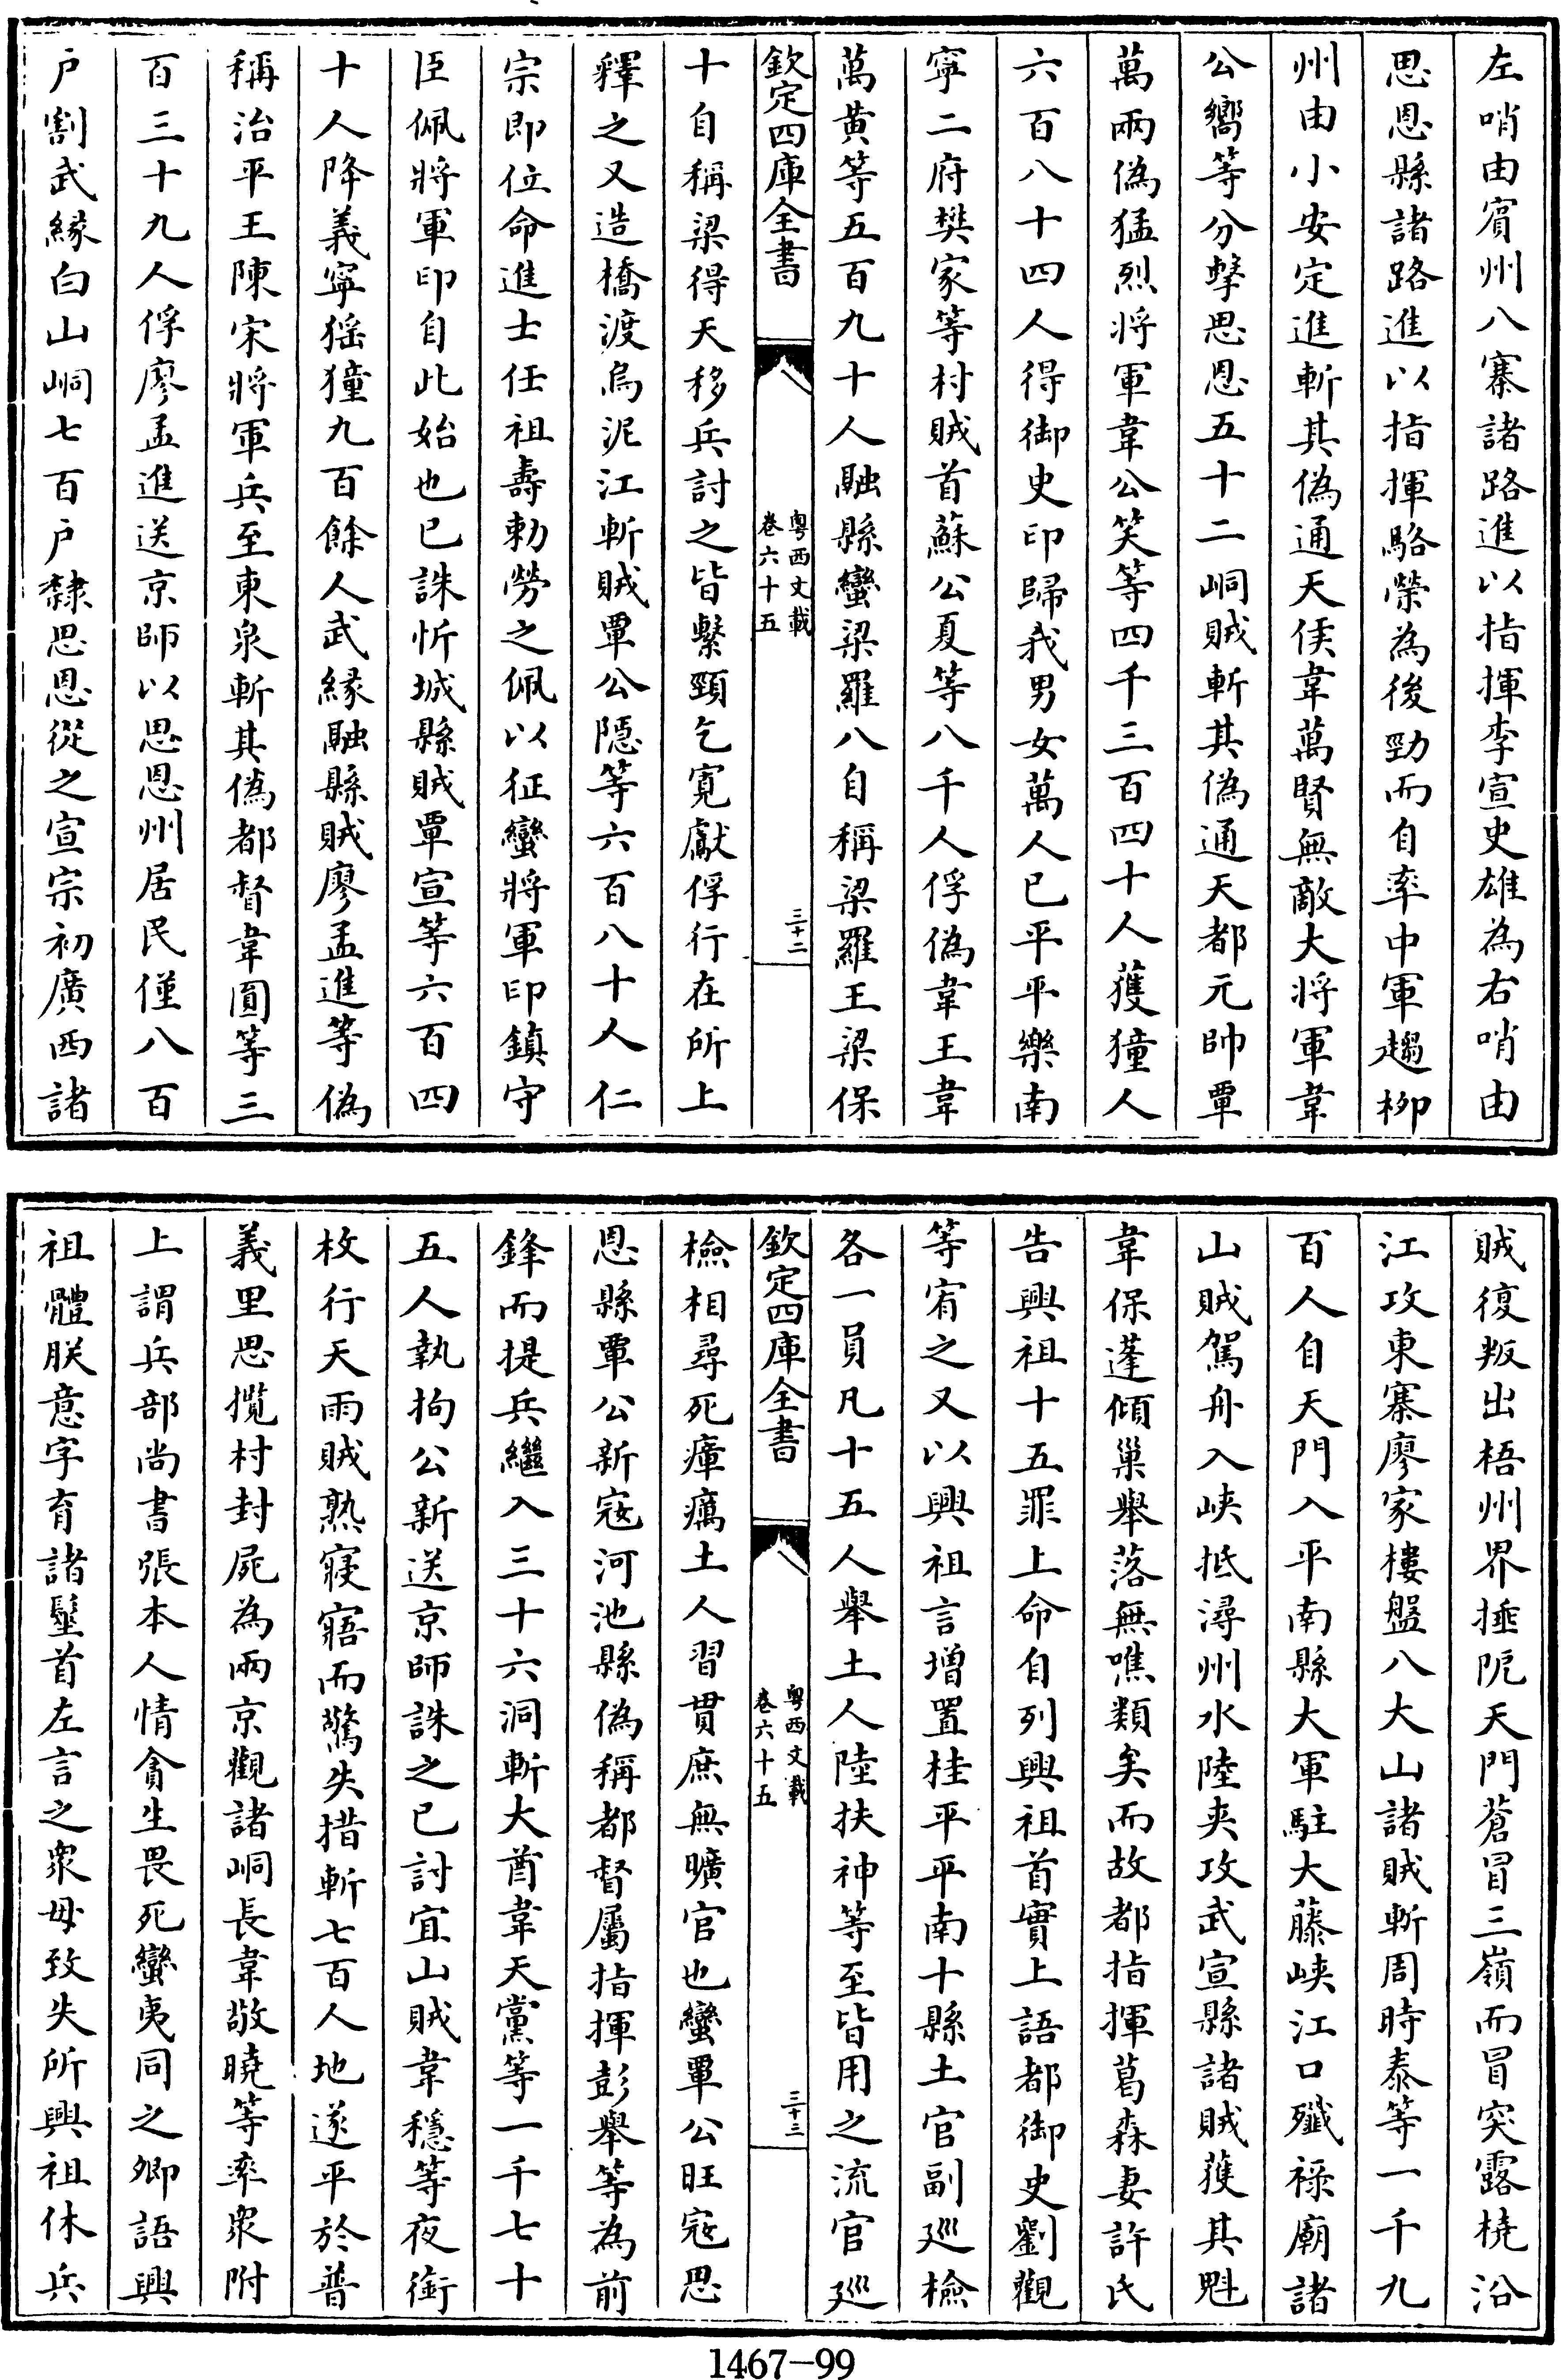 左哨由賓州八寨諸路進以指揮李宣史雄為右哨由
思恩縣諸路進以指揮駱榮為後勁而自率中軍趨柳
州由小安定進斬其偽通天侯韋萬賢無敵大將軍韋
公嚮等分擊思恩五十二峒賊斬其偽通天都元帥覃
萬兩偽猛烈將軍韋公笑等四千三百四十人獲獞人
六百八十四人得御史印歸我男女萬人已平平樂南
寧二府樊家等村賊首蘇公夏等八千人俘偽韋王韋
萬黃等五百九十人融縣蠻梁羅八自稱梁羅王梁保
欽定四庫全書
粵西文載
卷六十五
三十二
十自稱梁得天移兵討之皆繫頸乞寛獻俘行在所上
釋之又造橋渡烏泥江斬賊覃公隱等六百八十人仁
宗即位命進士任祖壽勅勞之佩以征蠻將軍印鎮守
臣佩將軍印自此始也已誅忻城縣賊覃宣等六百四
十人降義寧猺獞九百餘人武緣融縣賊廖孟進等偽
稱治平王陳宋將軍兵至東泉斬其偽都督韋圓等三
百三十九人俘廖孟進送京師以思恩州居民僅八百
户割武緣白山峒七百户隸思恩從之宣宗初廣西諸
賊復叛出梧州界捶阨天門蒼冒三嶺而冒突露橈沿
江攻東寨廖家樓盤八大山諸賊斬周時泰等一千九
百人自天門入平南縣大軍駐大藤峽江口殲祿廟諸
山賊駕舟入峽抵潯州水陸夾攻武宣縣諸賊獲其魁
韋保蓬傾巢舉落無噍類矣而故都指揮葛森妻許氏
告興祖十五罪上命自列興祖首實上語都御史劉觀
等宥之又以興祖言增置桂平平南十縣土官副廵檢
各一員凡十五人舉土人陸扶神等至皆用之流官廵
欽定四庫全書
粵西文載
卷六十五
三十三
檢相尋死瘴癘土人習貫庶無曠官也蠻覃公旺寇思
恩縣覃公新寇河池縣偽稱都督屬指揮彭舉等為前
鋒而提兵繼入三十六洞斬大酋韋天黨等一千七十
五人執拘公新送京師誅之已討宜山賊韋穩等夜銜
枚行天雨賊熟寢寤而驚失措斬七百人地遂平於普
義里思攬村封屍為兩京觀諸峒長韋敬曉等率衆附
上謂兵部尚書張本人情貪生畏死蠻夷同之卿語興
祖體朕意字育諸髽首左言之衆毋致失所興祖休兵
1467-99